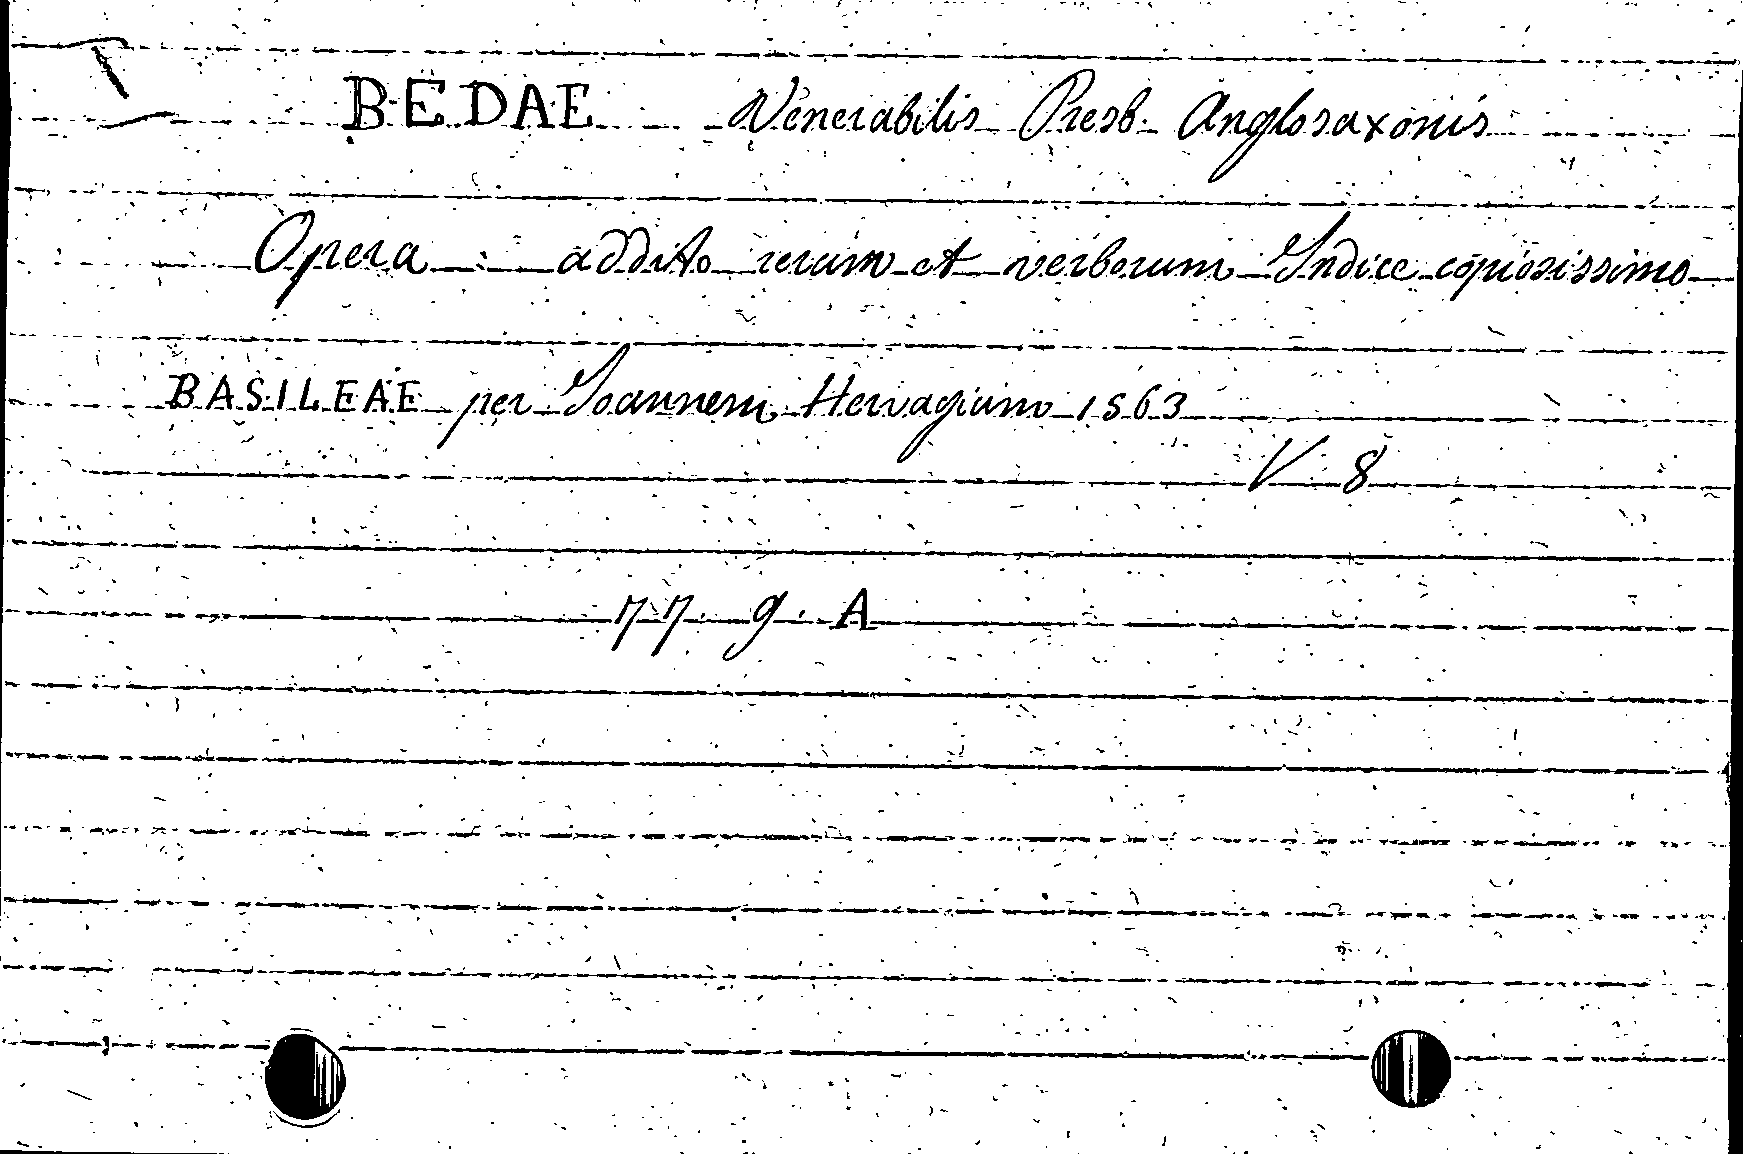 BEDAE Venerabilis Presb. Anglosaxonis
Opera addito rerum et verborum Indice copiosissimo
BASILEAE per Joannem Hervagium 1563
V 8
77. 9. A